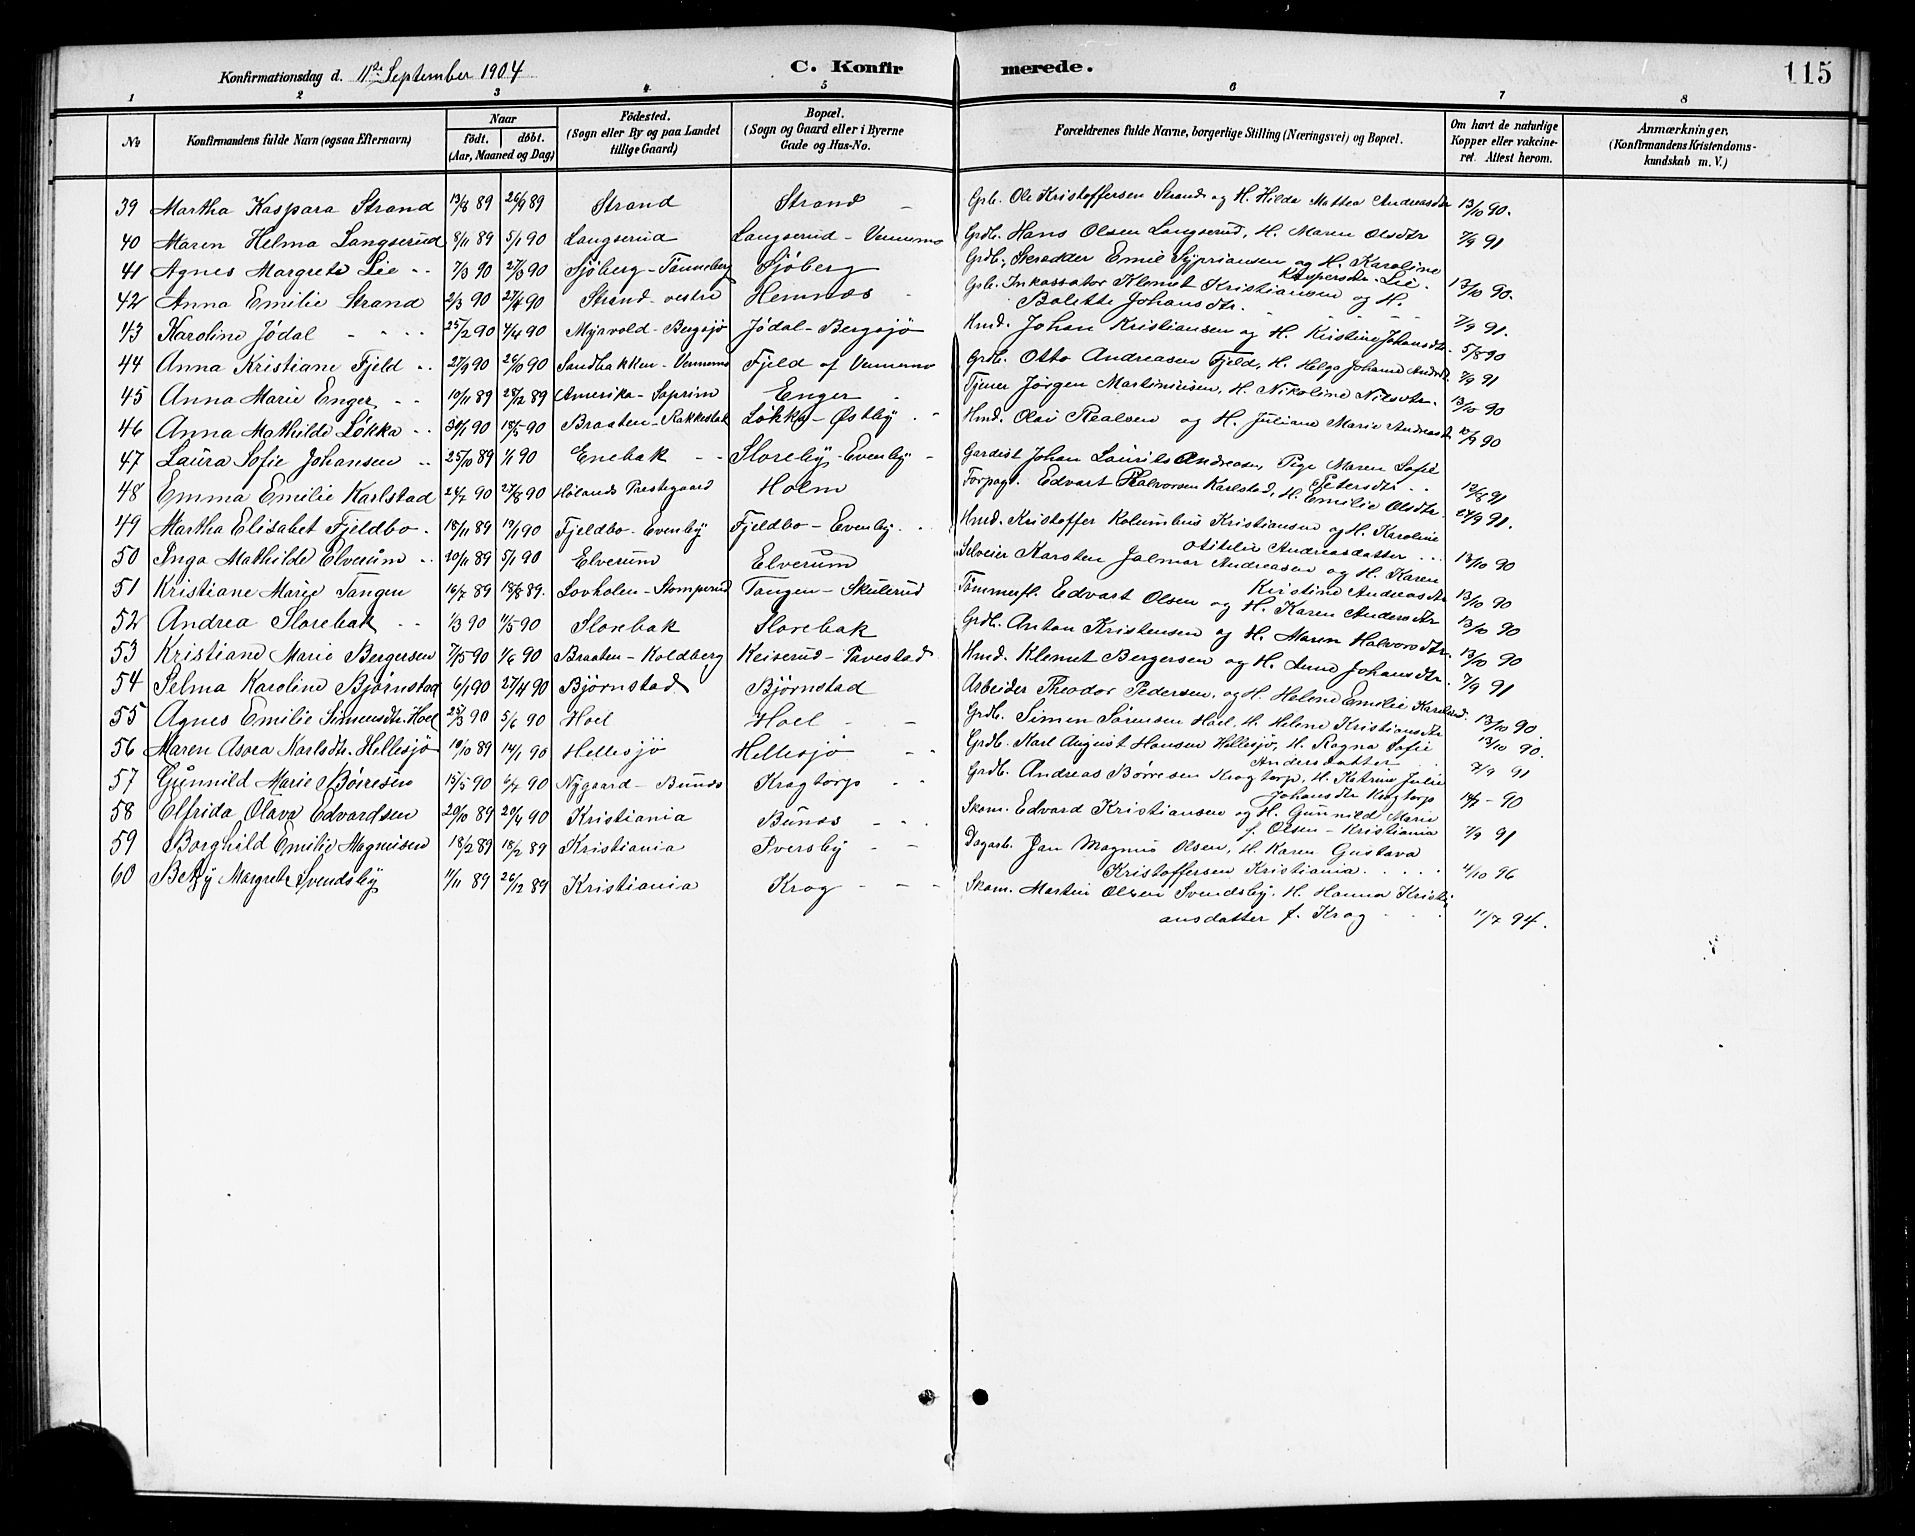 Konfirmationsdag d. 11te September 1904 C. Konfir merede. 115
1 2 3 4 5 6 7 8
No Konfirmandens fulde Navn (ogsaa Efternavn) Naar födt. döbt. (Aar, Maaned og Dag) Födested. (Sogn eller By og paa Landet tillige Gaard) Bopæl. (Sogn og Gaard eller i Byerne Gade og Hus-No. Forældrenes fulde Navne, borgerlige Stilling (Næringsvei) og Bopæl. Om havt de naturlige Kopper eller vakcineret. Attest herom. Anmærkninger. (Konfirmandens Kristendomskundskab m. V.)
39 Martha Kaspara Strand 13/8 89 26/9 89 Strand Strand Gsb. Ole Kristoffersen Strand og H. Hilda Mathea Andreasdtr 13/10 90.
40 Maren Helma Langserud 8/11 89 5/1 90 Langserud Langserud - Vennemo Grdb. Hans Olsen Langserud, H. Maren Olsdtr 7/9 91
41 Agnes Margrete Lie 7/3 90 27/3 90 Sjöberg - Tönneberg Sjöberg Grdb., Skrædder Emil Sypriansen og H. Karoline Kaspersdtr. Lie. 13/10 90.
42 Anna Emilie Strand 2/3 90 27/4 90 Strand - vestre Hemnæs Gsb. Inkassator Klemet Kristiansen og H. Bolette Johansdtr. 7/9 91.
43 Karoline Jödal 25/2 90 4/4 90 Myrvold - Bergsjö Jödal - Bergsjö Hmd. Johan Kristiansen og H. Kristine Johansdtr. 5/8 90
44 Anna Kristiane Fjeld 27/9 90 26/10 90 Sandbakken - Vennemo Fjeld af Vennemo Grdb. Otto Andreasen Fjeld, H. Helga Johanne Andrdtr. 7/9 91
45 Anna Marie Enger 10/11 89 28/12 89 Amerika - Saprim Enger Tjener Jörgen Martiniusen, H. Nikoline Nilsdtr. 13/10 90
46 Anna Mathilde Løkka 30/1 90 18/5 90 Braaten - Rakkestad Løkka - Østby Hmd. Olai Realsen og H. Juliane Marie Andreasdtr 10/9 90
47 Laura Sofie Johansen 25/10 89 1/1 90 Enebak Sloreby, Evenby Gardist Johan Laurits Andreasen, Pige Maren Sofie Petersdtr 12/8 91
48 Emma Emilie Karlstad 24/7 90 27/8 90 Hølands Prestegaard Holm Forpag. Edvart Halvorsen Karlstad, H. Emilie Olsdtr. 27/9 91.
49 Martha Elisabet Fjeldbo 18/11 89 19/1 90 Fjeldbo - Evenby Fjeldbo - Evenby Hmd. Kristoffer Kolumbus Kristiansen og H. Karoline Otitelie Andreasdatter 13/10 90
50 Inga Mathilde Elverum 20/11 89 5/1 90 Elverum Elverum Selveier Karsten Jalmar Andreasen og H. Karen Kristine Andreasdtr 13/10 90
51 Kristiane Marie Tangen 16/7 89 18/8 89. Lovholen - Stomperud Tangen - Skulerud Tömmerfl. Edvart Olsen og H. Karen Andersdtr 13/10 90
52 Andrea Slorebak 1/3 90 11/5 90 Slorebak Slorebak Grdb. Anton Kristensen og H. Maren Halvorsdtr. 13/10 90
53 Kristiane Marie Bergersen 7/5 90 1/6 90 Braaten - Koldberg Keiserud - Tavestad Hmd. Klemet Bergersen og H. Anne Johansdtr. 7/9 91
54 Selma Karoline Bjørnstad 6/1 90 27/4 90 Bjørnstad Bjørnstad Arbeider Theodor Pedersen, og H. Helene Emilie Karlsdtr. 13/10 90.
55 Agnes Emilie Simensdtr. Hoel 25/3 90 5/6 90 Hoel Hoel Grdb. Simen Sørensen Hoel, H. Helene Kristiansdtr 13/10 90.
56 Maren Asora Karlsdtr. Hellesjø 10/10 89 14/1 90 Hellesjø Hellesjø Grdb. Karl August Hansen Hellesjø, H. Ragna Sofie Andersdatter 7/9 91
57 Gunnild Marie Böiresen 15/5 90 6/7 90 Nygaard - Bunds Kragtorp Grdb. Andreas Börresen Kragtorp, H. Katrine Julie Johansdtr Kragtorp 14/7 - 90
58 Elfrida Olava Edvardsen 20/10 89 20/4 90 Kristiania Bunds Skom. Edvard Kristiansen og H. Gunnild Marie f. Olsen - Kristiania 7/9 91
59 Borghild Emilie Magnisen 18/2 89 18/2 89 Kristiania Tversby Dagarb. Jan Magnus Olsen, H. Karen Gustava Kristoffersen Kristiania 4/10 96
60 Betzy Margrete Svendsby 11/11 89 26/12 89 Kristiania Krog Skom. Martin Olsen Svendsby. H. Hanna Kristiansdatter f. Krog 11/7 94.